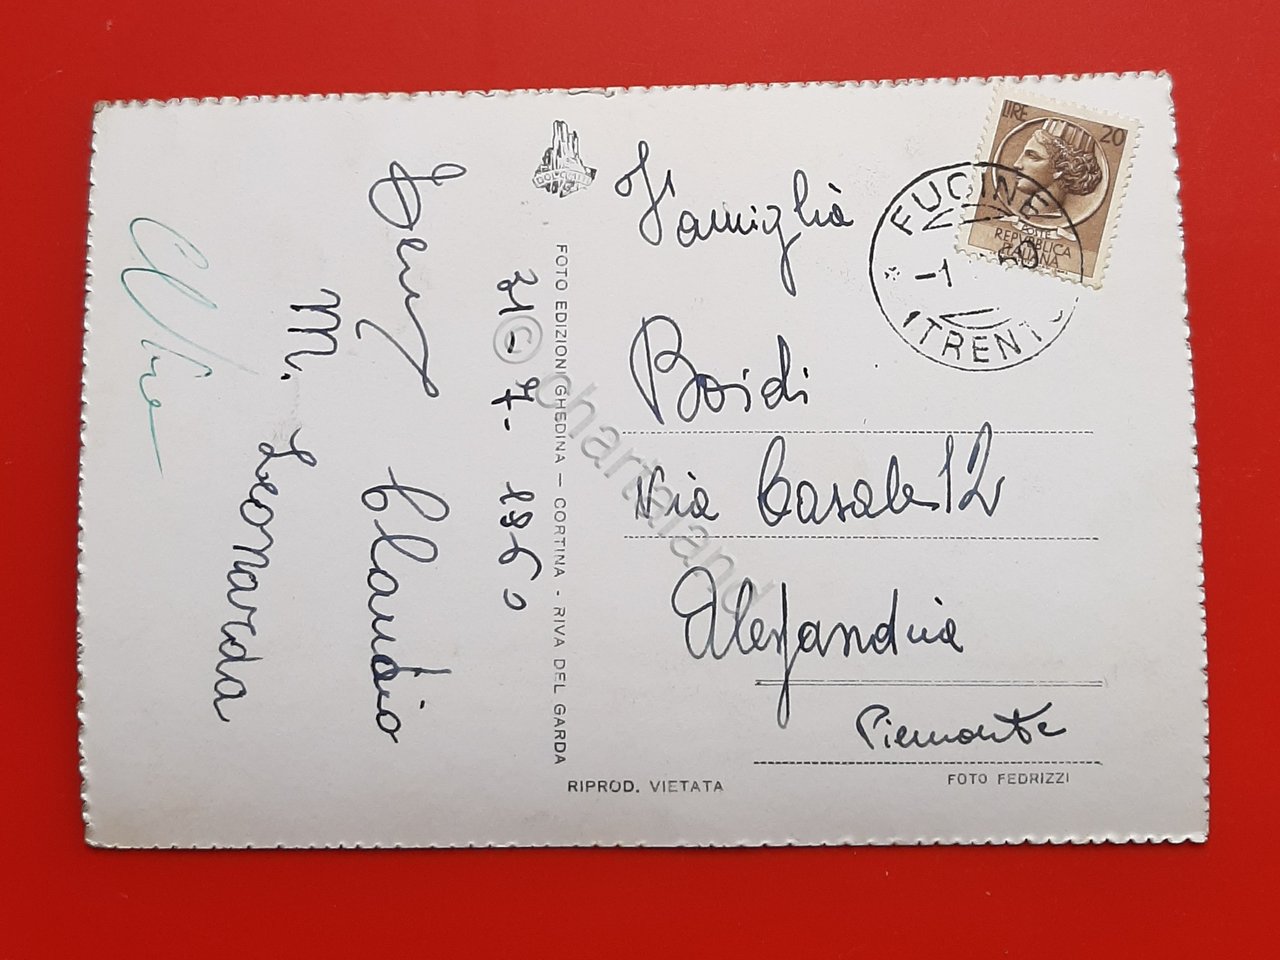 31-7-1960
Claudio
M. Leonarda
DOLOMITI
FOTO EDIZIONI GHEDINA — CORTINA - RIVA DEL GARDA
RIPROD. VIETATA
LIRE 20
POSTE
REPVBBLICA
ITALIANA
FUCINE
-1
(TRENTO
Famiglia
Boidi
Via Casale 12
Alessandria
Piemonte
FOTO FEDRIZZI
© chartaland